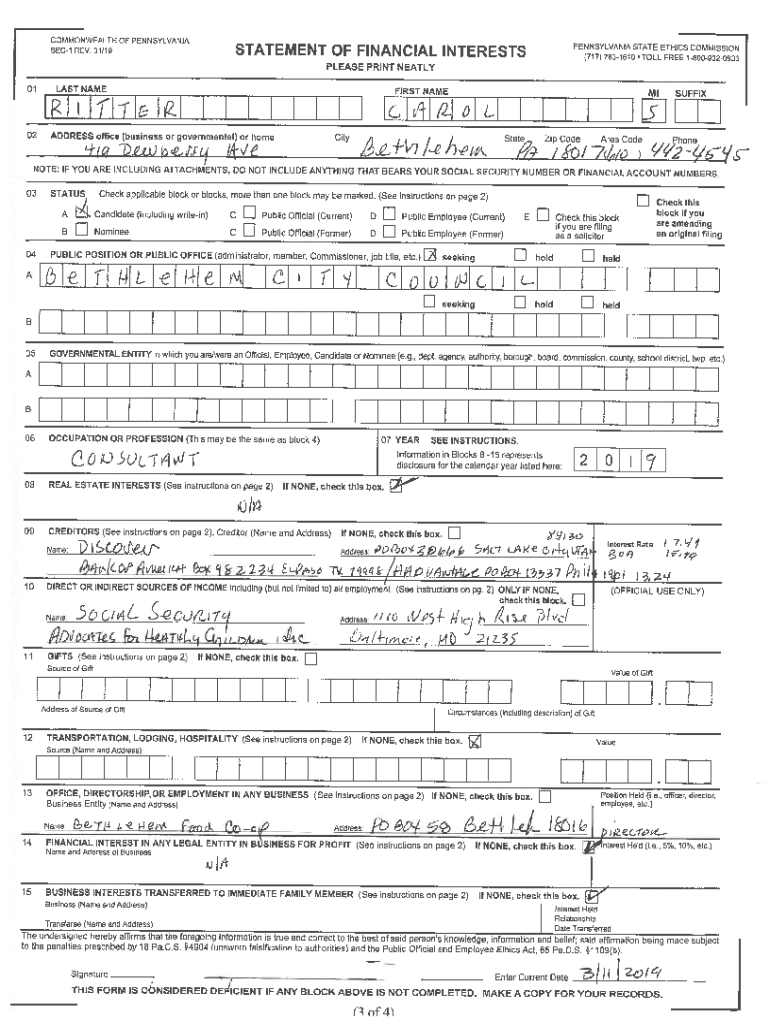 COMMONWEALTH OF PENNSYLVANIA
SEC-1 REV. 01/19
STATEMENT OF FINANCIAL INTERESTS
PLEASE PRINT NEATLY
PENNSYLVANIA STATE ETHICS COMMISSION
(717) 783-1610 • TOLL FREE 1-800-932-0936
01 LAST NAME FIRST NAME MI SUFFIX
RITTER CAROL S
02 ADDRESS office (business or governmental) or home City State Zip Code Area Code Phone
419 Dewberry Ave Bethlehem PA 18017 (610) 442-4545
NOTE: IF YOU ARE INCLUDING ATTACHMENTS, DO NOT INCLUDE ANYTHING THAT BEARS YOUR SOCIAL SECURITY NUMBER OR FINANCIAL ACCOUNT NUMBERS.
03 STATUS Check applicable block or blocks, more than one block may be marked. (See Instructions on page 2)
A Candidate (including write-in) C Public Official (Current) D Public Employee (Current) E Check this block if you are filing as a solicitor
B Nominee C Public Official (Former) D Public Employee (Former)
Check this block if you are amending an original filing
04 PUBLIC POSITION OR PUBLIC OFFICE (administrator, member, Commissioner, job title, etc.) X seeking hold held
A BETHLEHEM CITY COUNCIL
seeking hold held
B
05 GOVERNMENTAL ENTITY in which you are/were an Official, Employee, Candidate or Nominee (e.g., dept. agency, authority, borough, board, commission, county, school district, twp. etc.)
A
B
06 OCCUPATION OR PROFESSION (This may be the same as block 4)
CONSULTANT
07 YEAR SEE INSTRUCTIONS.
Information in Blocks 8 -15 represents
disclosure for the calendar year listed here: 2019
08 REAL ESTATE INTERESTS (See instructions on page 2) If NONE, check this box.
N/A
09 CREDITORS (See instructions on page 2). Creditor (Name and Address) If NONE, check this box. 84130
Name: Discover Address: PO BOX SALT LAKE City UTAH
Interest Rate 17.49
BOA
BANK OF AMERICA BOX 982234 EL PASO TX 79998 / PO BOX 13337 13.24
10 DIRECT OR INDIRECT SOURCES OF INCOME Including (but not limited to) all employment. (See instructions on pg. 2) ONLY IF NONE, check this block.
(OFFICIAL USE ONLY)
Name: SOCIAL SECURITY Address: 1110 West High Rise Blvd
ADVOCATES for HEATHLy CHILDREN, Inc Baltimore, MD 21235
11 GIFTS (See instructions on page 2) If NONE, check this box.
Source of Gift Value of Gift
Address of Source of Gift Circumstances (including description) of Gift
12 TRANSPORTATION, LODGING, HOSPITALITY (See instructions on page 2) If NONE, check this box. X
Source (Name and Address) Value
13 OFFICE, DIRECTORSHIP, OR EMPLOYMENT IN ANY BUSINESS (See Instructions on page 2) If NONE, check this box.
Business Entity (Name and Address)
Position Held (i.e., officer, director, employee, etc.)
Name: BETHLEHEM Food Co-op Address: PO BOX 58 Bethleh 18016 DIRECTOR
14 FINANCIAL INTEREST IN ANY LEGAL ENTITY IN BUSINESS FOR PROFIT (See instructions on page 2) If NONE, check this box. Interest Held (i.e., 5%, 10%, etc.)
Name and Address of Business
N/A
15 BUSINESS INTERESTS TRANSFERRED TO IMMEDIATE FAMILY MEMBER (See instructions on page 2) If NONE, check this box.
Business (Name and Address)
Interest Held
Relationship
Transferee (Name and Address)
Date Transferred
The undersigned hereby affirms that the foregoing information is true and correct to the best of said person's knowledge, information and belief; said affirmation being made subject
to the penalties prescribed by 18 Pa.C.S. §4904 (unsworn falsification to authorities) and the Public Official and Employee Ethics Act, 65 Pa.C.S. §1109(b).
Signature Enter Current Date 3/11/2019
THIS FORM IS CONSIDERED DEFICIENT IF ANY BLOCK ABOVE IS NOT COMPLETED. MAKE A COPY FOR YOUR RECORDS.
(3 of 4)